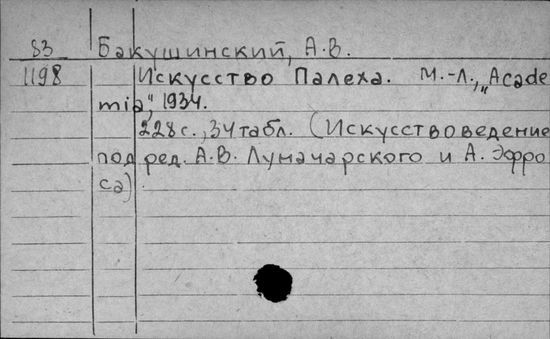 83 Бакушинский, А.В.
1198 Искусство Палеха. М.-Л., „Acade
mia", 1934.
228 с., 34 табл. (Искусствоведение
под ред. А.В. Луначарского и А. Эфро
са).